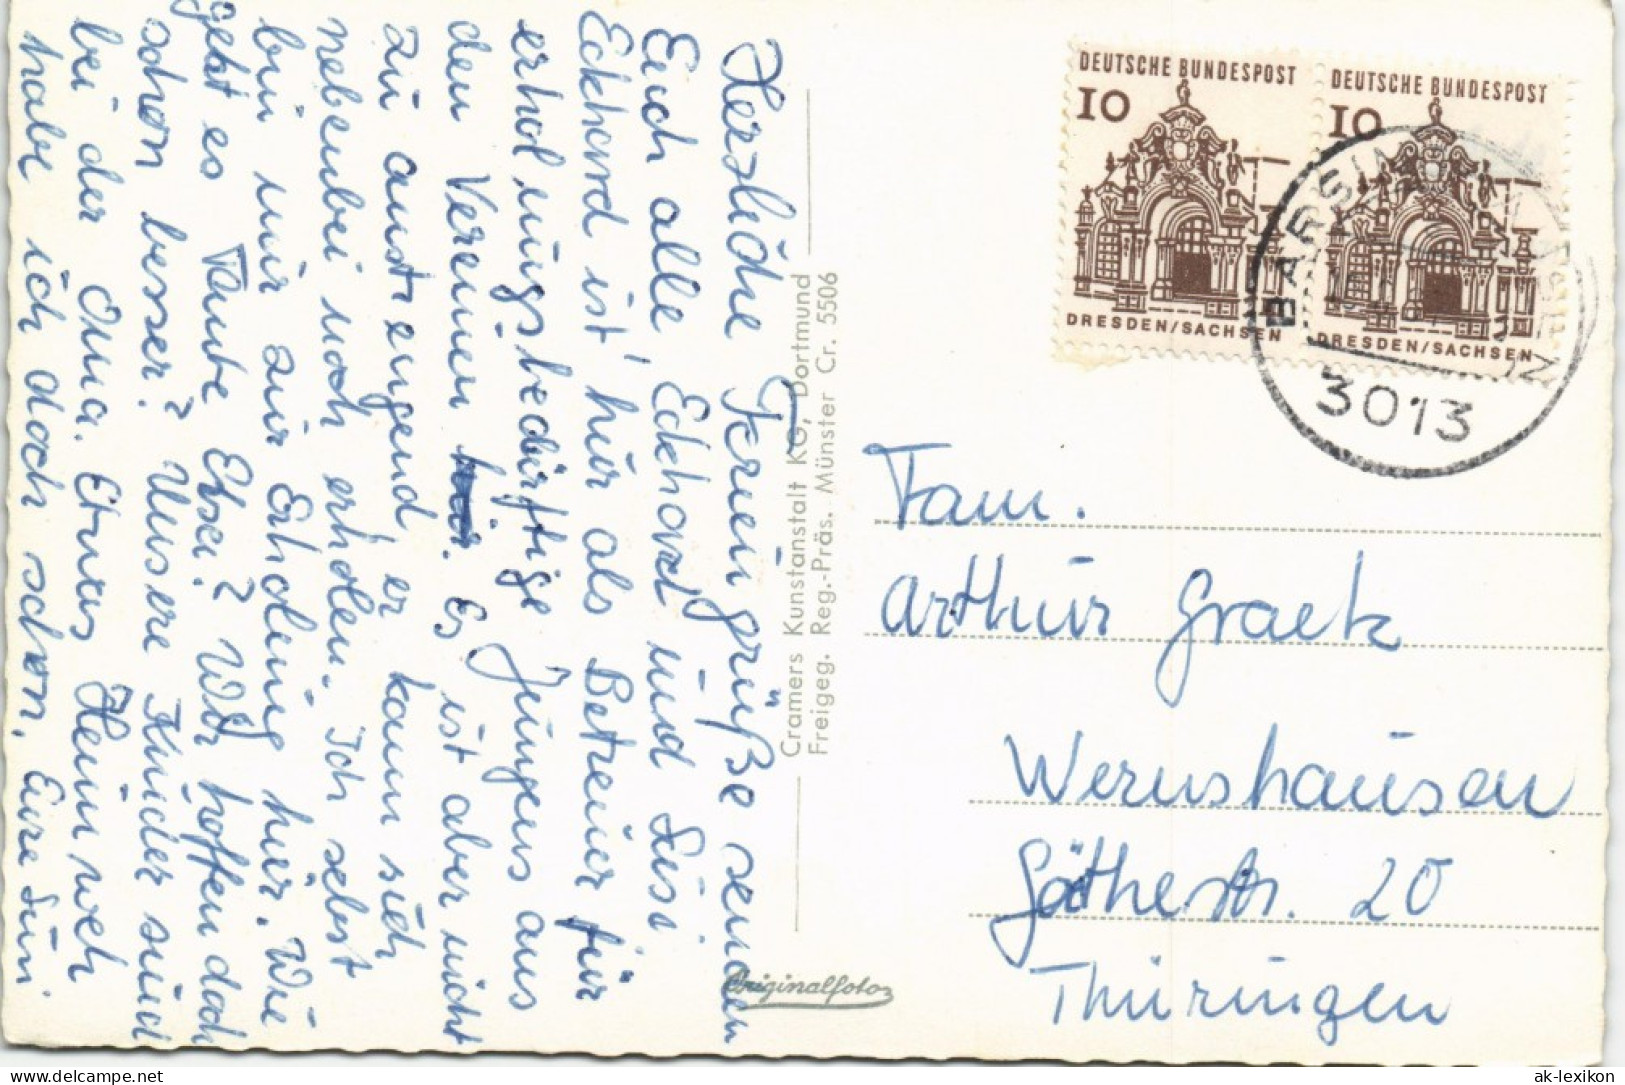 Herzliche Feriengrüße senden
Euch alle Eckhard und Susi
Eckhard ist hier als Betreuer für
erholungsbedürftige Jungens aus
den Vereinen. Es ist aber nicht
zu anstrengend, er kann sich
nebenbei noch erholen. Ich selbst
bin nur zur Erholung hier. Wie
geht es Tante Elsa? Wir hoffen doch
schon besser? Unsere Kinder sind
bei der Oma. Etwas Heimweh
habe ich doch schon. Eure Susi
Cramers Kunstanstalt KG, Dortmund
Freigeg. Reg.-Präs. Münster Cr. 5506
Originalfoto
DEUTSCHE BUNDESPOST
10
DRESDEN/SACHSEN
DEUTSCHE BUNDESPOST
10
DRESDEN/SACHSEN
3013
Fam.
Arthur Graek
Wernshausen
Göthestr. 20
Thüringen
delcampe.net
ak-lexikon